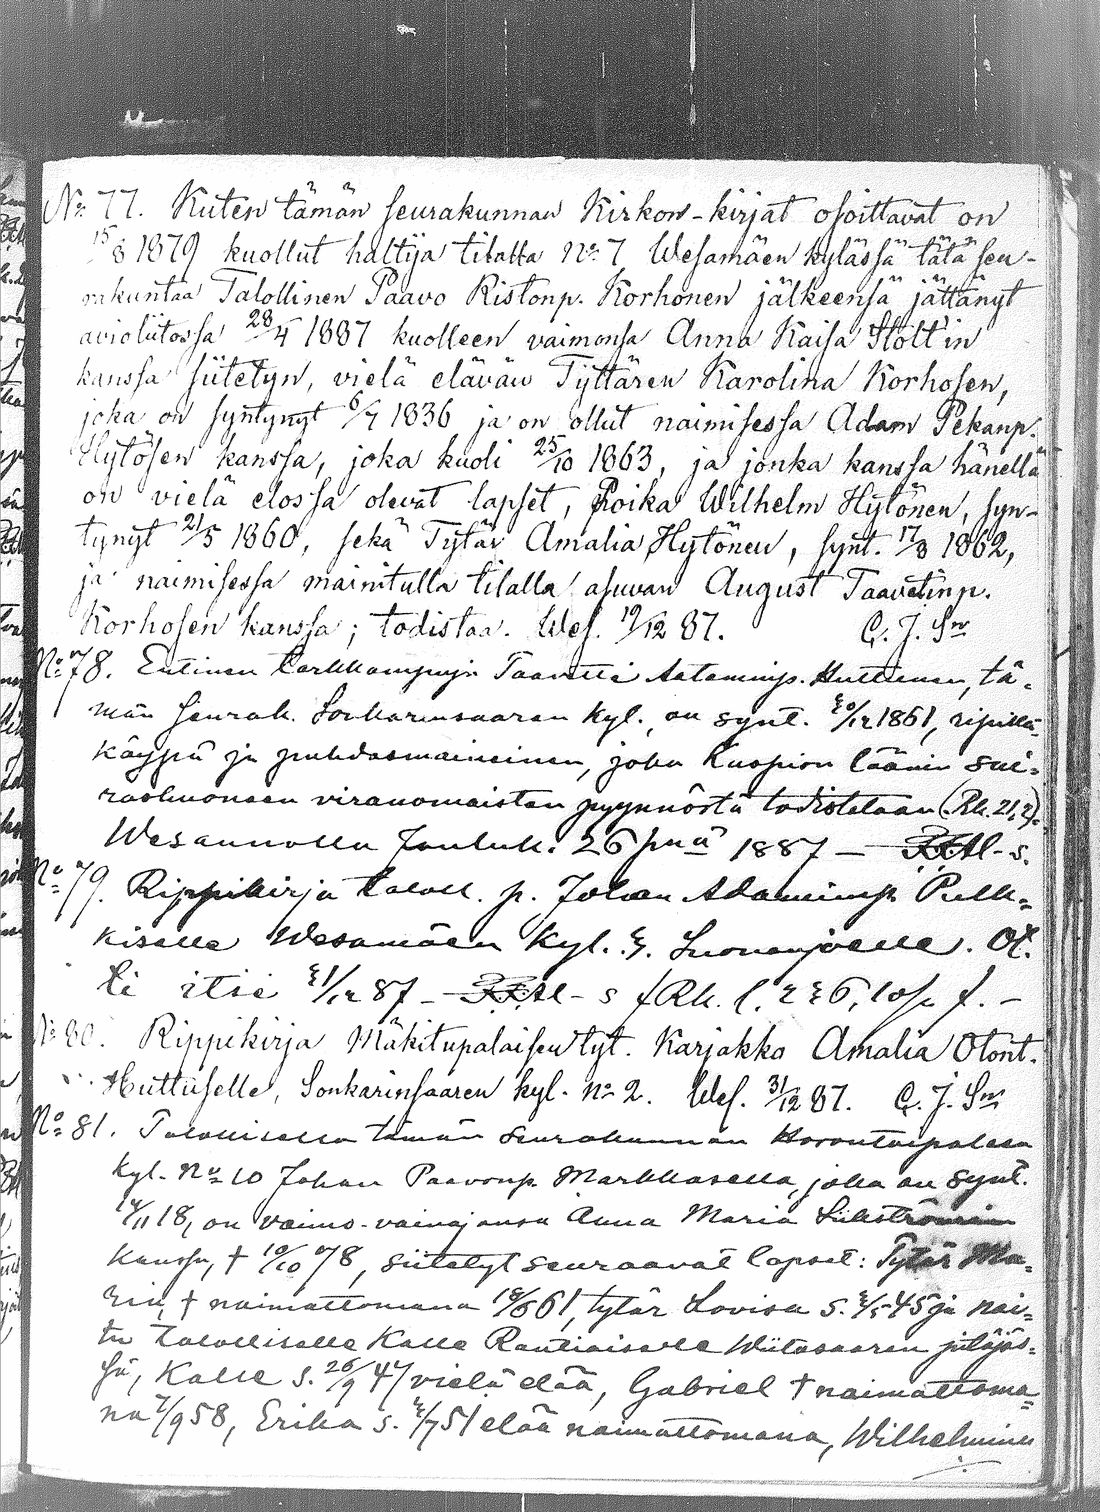 No 77. Kuten tämän seurakunnan Kirkon-kirjat osoittavat on
15/8 1879 kuollut haltija tilalta No 7 Wesamäen kylässä tätä seu-
rakuntaa Talollinen Paavo Ristonp. Korhonen jälkeensä jättänyt
avioliitossa 28/4 1887 kuolleen vaimonsa Anna Kaisa Holt'in
kanssa siitetyn, vielä elävän Tyttären Karolina Korhosen,
joka on syntynyt 6/7 1836 ja on ollut naimisessa Adam Pekanp.
Hytösen kanssa, joka kuoli 25/10 1863, ja jonka kanssa hänellä
on vielä elossa olevat lapset, Poika Wilhelm Hytönen, syn-
tynyt 21/5 1860, sekä Tytär Amalia Hytönen, synt. 17/8 1862,
ja naimisessa mainitulla tilalla asuvan August Taavetinp.
Korhosen kanssa; todistaa. Wes. 19/12 87. C. J. Sn
No 78. Entinen Taavetti Aataminp. Huttunen, tä-
män seurak. Sonkarinsaaren kyl., on synt. 20/12 1861, ripillä
käypä ja puhdasmaineinen, joka Kuopion läänin sai-
rashuoneen viranomaisten pyynnöstä todistetaan (Rk. 212).
Wesannolla Jouluk. 26 pnä 1887 –
No 79. Rippikirja taloll. p. Johan Adaminp. Pulk-
kiselle Wesamäen kyl. 2. Suonenjoelle. Ot.
ti itse 21/12 87 –
No 80. Rippikirja Mäkitupalaisen tyt. Karjakko Amalia Otont.
Huttuselle, Sonkarinsaaren kyl. No 2. Wes. 31/12 87. C. J. Sn
No 81. Talollisella tämän seurakunnan Horontaipaleen
kyl. No 10 Johan Paavonp. Markkasella, joka on synt.
14/11 18, on vaimo-vainajansa Anna Maria
kanssa, † 10/10 78, siitetyt seuraavat lapset: Tytär Ma-
ria, † naimattomana 18/6 61, tytär Lovisa s. 2/5 45 ja nai-
tu talolliselle Kalle Rautiaiselle Wiitasaaren pitäjäs-
sä, Kalle s. 26/9 47 vielä elää, Gabriel † naimattoma-
na 7/9 58, Erika s. 2/7 51 elää naimattomana, Wilhelmina